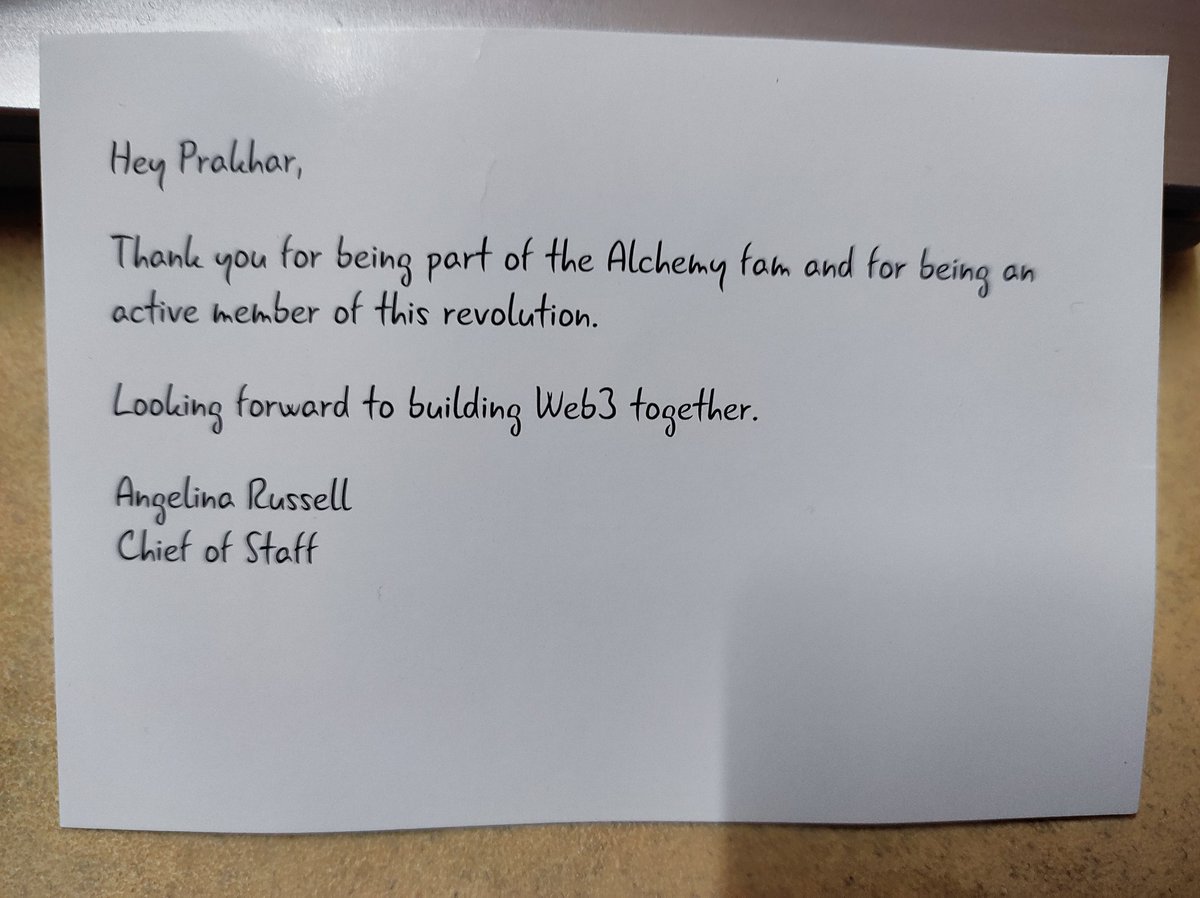 Hey Prakhar,
Thank you for being part of the Alchemy fam and for being an
active member of this revolution.
Looking forward to building Web3 together.
Angelina Russell
Chief of Staff